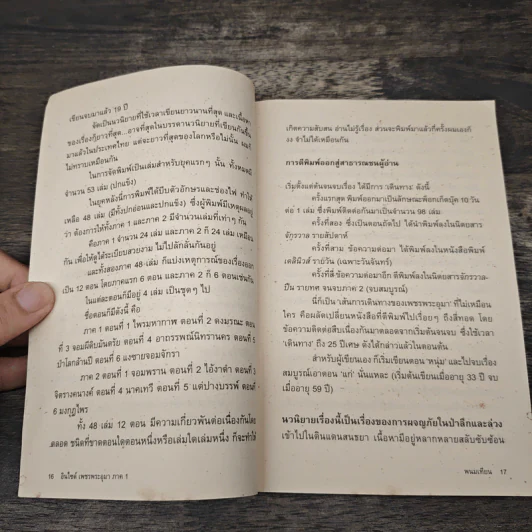 เขียนจบมาแล้ว 19 ปี
จัดเป็นนวนิยายที่ใช้เวลาเขียนยาวนานที่สุด และเนื้อหา
ของเรื่องก็ยาวที่สุด...อาจที่สุดในบรรดานวนิยายที่เขียนกันขึ้น
มาแล้วในประเทศไทย แต่จะยาวที่สุดของโลกหรือไม่นั้น ผมก็
ไม่ทราบเหมือนกัน
ในการจัดพิมพ์เป็นเล่มสำหรับยุคแรกๆ นั้น ทั้งหมดมี
จำนวน 53 เล่ม (ปกแข็ง)
ในยุคหลังนี้การพิมพ์ได้บีบตัวอักษรและช่องไฟ ทำให้
เหลือ 48 เล่ม (มีทั้งปกอ่อนและปกแข็ง) ซึ่งผู้พิมพ์มีเหตุผลอยู่
ว่า ต้องการให้ทั้งภาค 1 และภาค 2 มีจำนวนเล่มที่เท่าๆ กัน
คือภาค 1 จำนวน 24 เล่ม และภาค 2 ก็ 24 เล่ม เหมือน
กัน เพื่อให้ดูได้ระเบียบสวยงาม ไม่ไปลักลั่นกันอยู่
และทั้งสองภาค 48 เล่ม ก็แบ่งเหตุการณ์ของเรื่องออก
เป็น 12 ตอน โดยภาคแรก 6 ตอน และภาค 2 ก็ 6 ตอนเช่นกัน
ในแต่ละตอนก็มีอยู่ 4 เล่ม เป็นชุดๆ ไป
ชื่อตอนก็มีดังนี้ คือ
ภาค 1 ตอนที่ 1 ไพรมหากาฬ ตอนที่ 2 ดงมรณะ ตอน
ที่ 3 จอมผีดิบมันตรัย ตอนที่ 4 อาถรรพณ์นิทรานคร ตอนที่ 5
ป่าโลกล้านปี ตอนที่ 6 แงซายจอมจักรา
ภาค 2 ตอนที่ 1 จอมพราน ตอนที่ 2 ไอ้งาดำ ตอนที่ 3
จิตรางคนางค์ ตอนที่ 4 นาคเทวี ตอนที่ 5 แต่ปางบรรพ์ ตอนที่
6 มงกุฎไพร
ทั้ง 48 เล่ม 12 ตอน มีความเกี่ยวพันต่อเนื่องกันโดย
ตลอด ชนิดที่ขาดตอนใดตอนหนึ่งหรือเล่มใดเล่มหนึ่ง ก็จะทำให้
16 อินไซด์ เพชรพระอุมา ภาค 1
เกิดความสับสน อ่านไม่รู้เรื่อง ส่วนจะพิมพ์มาแล้วกี่ครั้งผมเองก็
จำไม่ได้เหมือนกัน
การตีพิมพ์ออกสู่สาธารณชนผู้อ่าน
เริ่มตั้งแต่ต้นจนจบเรื่อง ได้มีการ 'เดินทาง' ดังนี้
ครั้งแรกสุด พิมพ์ออกมาเป็นลักษณะพ็อกเก็ตบุ๊ค 10 วัน
ต่อ 1 เล่ม ซึ่งพิมพ์ติดต่อกันมาเป็นจำนวน 98 เล่ม
ครั้งที่สอง ซึ่งเป็นตอนถัดไป ได้นำพิมพ์ลงในนิตยสาร
จักรวาล รายสัปดาห์
ครั้งที่สาม ข้อความต่อมา ได้พิมพ์ลงในหนังสือพิมพ์
เดลินิวส์ รายวัน (เฉพาะวันจันทร์)
ครั้งที่สี่ ข้อความต่อมาอีก ตีพิมพ์ลงในนิตยสารจักรวาล-
ปืน รายทศ จนจบภาค 2 (จบสมบูรณ์)
นี่ก็เป็น 'เส้นการเดินทางของเพชรพระอุมา' ที่ไม่เหมือน
ใคร คือผลเปลี่ยนหนังสือที่ตีพิมพ์ไปเรื่อยๆ ถึงสี่ทอด โดย
ข้อความติดต่อสืบเนื่องกันมาตลอดจากเริ่มต้นจนจบ ซึ่งใช้เวลา
'เดินทาง' ถึง 25 ปีเศษ ดังได้กล่าวแล้วในตอนต้น
สำหรับผู้เขียนเอง ก็เริ่มเขียนตอน 'หนุ่ม' และไปจบเรื่อง
สมบูรณ์เอาตอน 'แก่' นั่นแหละ (เริ่มต้นเขียนเมื่ออายุ 33 ปี จบ
เมื่ออายุ 59 ปี)
นวนิยายเรื่องนี้เป็นเรื่องของการผจญภัยในป่าลึกและล่วง
เข้าไปในดินแดนสนธยา เนื้อหามีอยู่หลากหลายสลับซับซ้อน
พนมเทียน 17